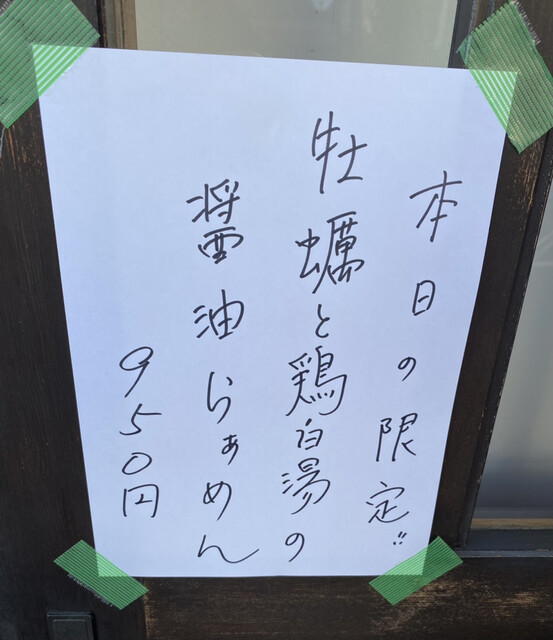 本日の限定!!
牡蠣と鶏白湯の
醤油らぁめん
950円